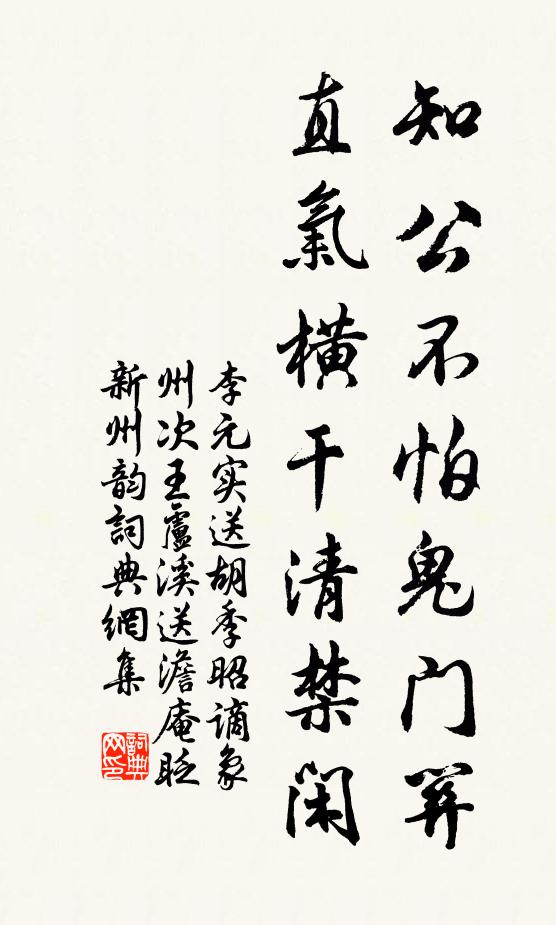 知公不怕鬼门关
直氣横干清禁闲
李元实送胡季昭谪象
州次王盧溪送澹庵贬
新州韵詞典網集
詞典网印